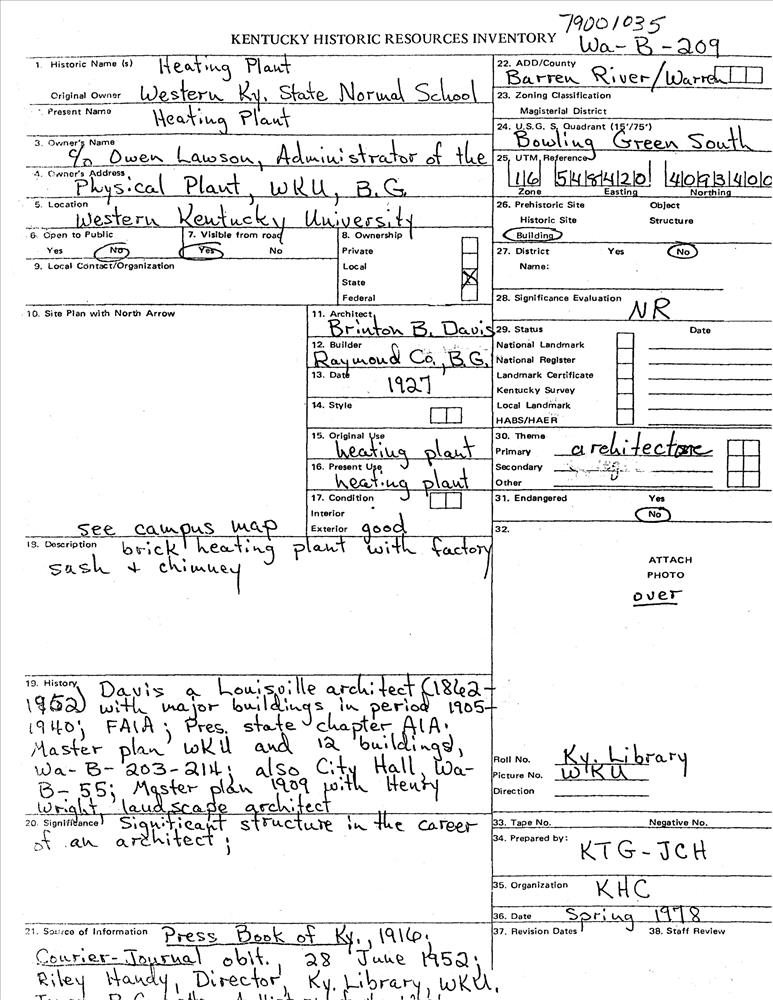 79001035
KENTUCKY HISTORIC RESOURCES INVENTORY Wa-B-209
1. Historic Name (s) Heating Plant
Original Owner Western Ky. State Normal School
2. Present Name Heating Plant
3. Owner's Name
c/o Owen Lawson, Administrator of the
4. Owner's Address
Physical Plant, WKU, B.G.
5. Location
Western Kentucky University
6. Open to Public
Yes No
7. Visible from road
Yes No
8. Ownership
Private
Local
State
Federal
9. Local Contact/Organization
10. Site Plan with North Arrow
see campus map
11. Architect
Brinton B. Davis
12. Builder
Raymond Co., B.G.
13. Date
1927
14. Style
15. Original Use
heating plant
16. Present Use
heating plant
17. Condition
Interior
Exterior good
18. Description brick heating plant with factory
sash & chimney
19. History Davis a Louisville architect (1862-
1952) with major buildings in period 1905-
1940; FAIA; Pres. state chapter AIA.
Master plan WKU and 12 buildings,
Wa-B-203-214; also City Hall, Wa-
B-55; Master plan 1909 with Henry
Wright, landscape architect
20. Significance Significant structure in the career
of an architect;
21. Source of Information Press Book of Ky., 1916;
Courier-Journal obit. 28 June 1952;
Riley Handy, Director, Ky. Library, WKU.
22. ADD/County
Barren River/Warren
23. Zoning Classification
Magisterial District
24. U.S.G. S. Quadrant (15'/75')
Bowling Green South
25. UTM Reference
16 548420 4093400
Zone Easting Northing
26. Prehistoric Site Object
Historic Site Structure
Building
27. District Yes No
Name:
28. Significance Evaluation
NR
29. Status Date
National Landmark
National Register
Landmark Certificate
Kentucky Survey
Local Landmark
HABS/HAER
30. Theme
Primary architecture
Secondary
Other
31. Endangered Yes
No
32.
ATTACH
PHOTO
over
Roll No. Ky. Library
Picture No. WKU
Direction
33. Tape No. Negative No.
34. Prepared by:
KTG-JCH
35. Organization KHC
36. Date Spring 1978
37. Revision Dates 38. Staff Review